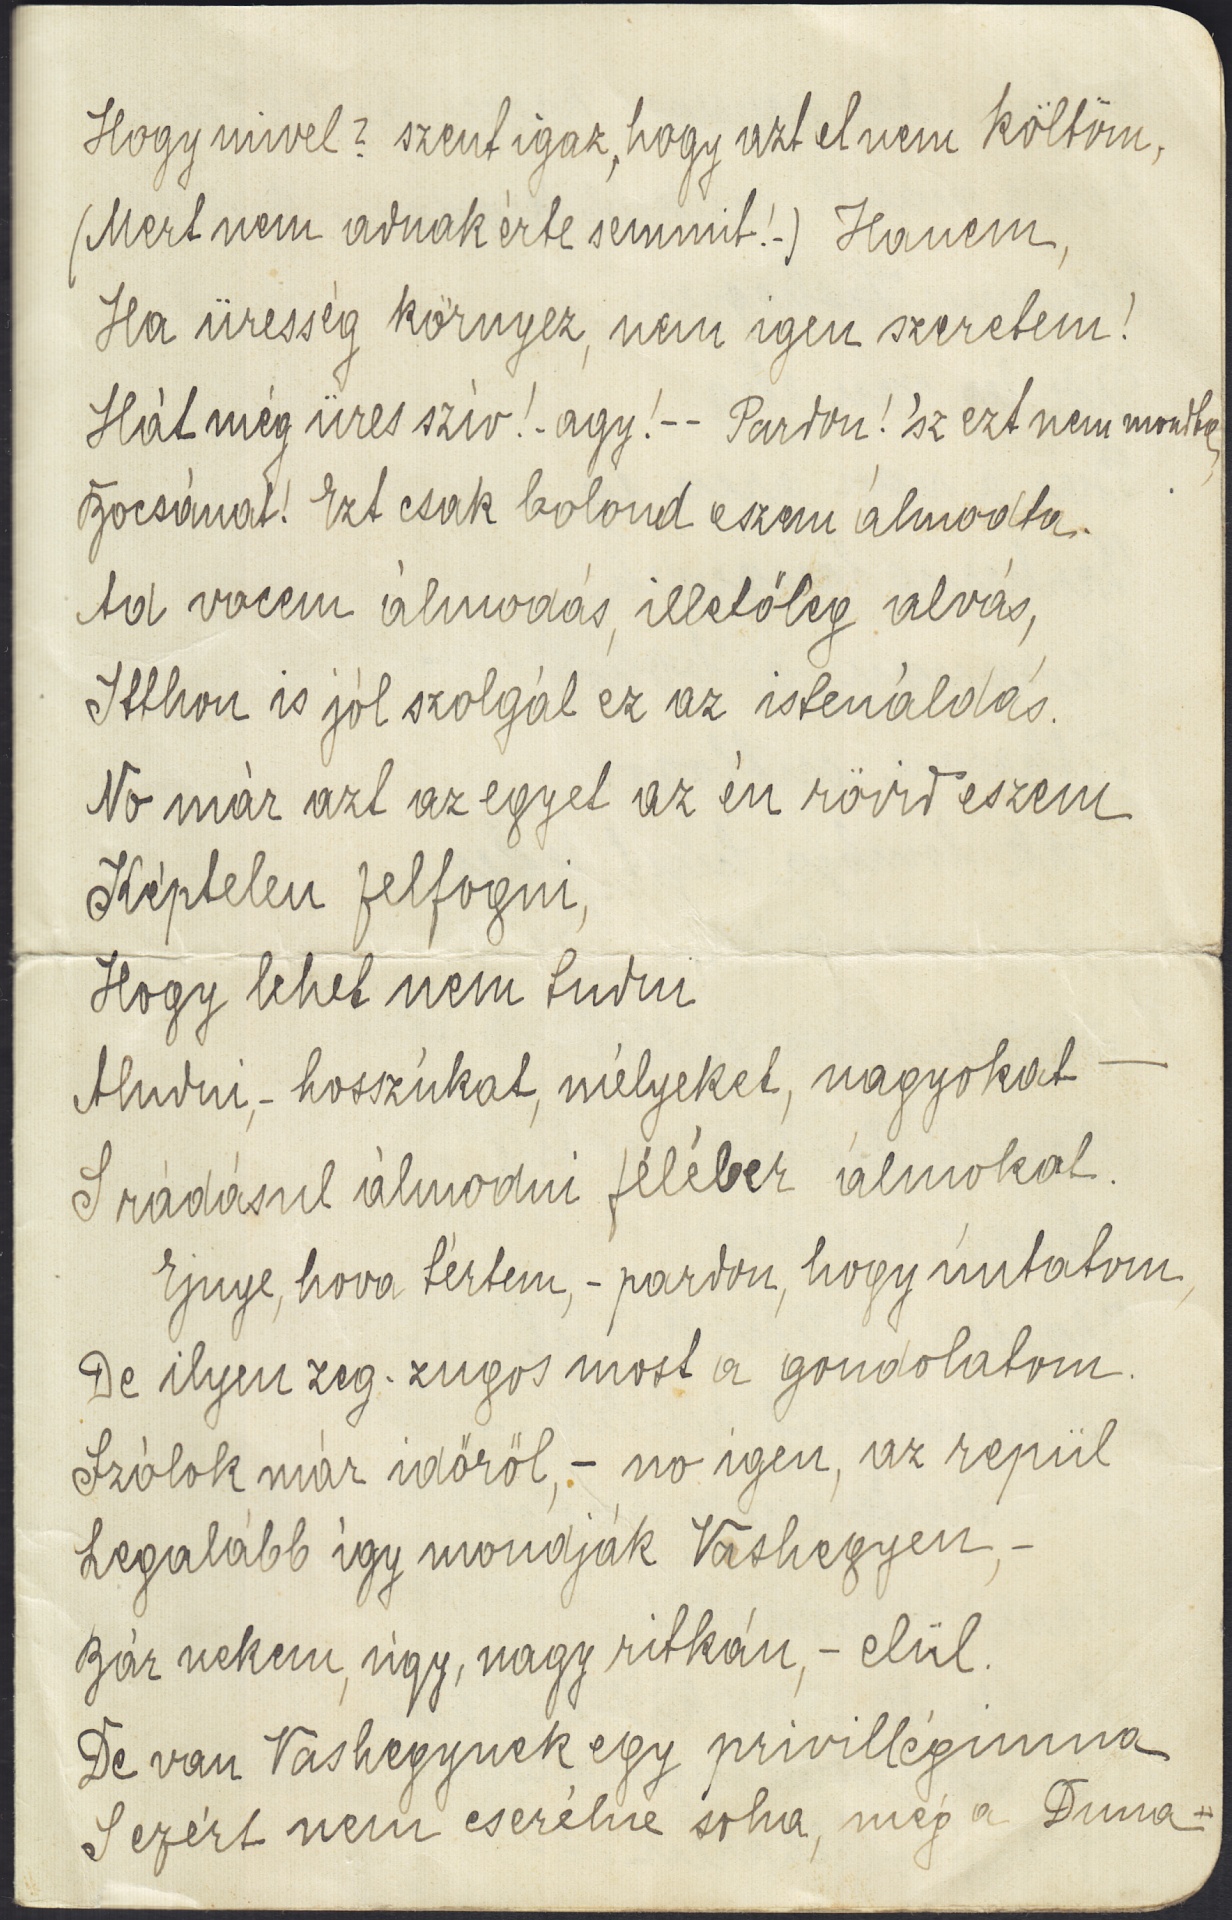 Hogy mivel? szent igaz, hogy azt el nem költöm,
(Mert nem adnak érte semmit! -) Hanem,
Ha üresség környez, nem igen szeretem!
Hát még üres szív! - agy! -- Pardon! 'sz ezt nem mondta,
Bocsánat! Ezt csak bolond eszem álmodta.
Ad vocem álmodás, illetőleg alvás,
Itthon is jól szolgál ez az istenáldás.
No már azt az egyet az én rövid eszem
Képtelen felfogni,
Hogy lehet nem tudni
Aludni, - hosszúkat, mélyeket, nagyokat —
S rádásul álmodni féléber álmokat.
Ejnye, hova tértem, - pardon, hogy úntatom,
De ilyen zeg-zugos most a gondolatom.
Szólok már időről, - no igen, az repül
Legalább így mondják Vashegyen, -
Bár nekem, úgy, nagy ritkán, - elül.
De van Vashegynek egy privillégiuma
S ezért nem cserélne soha, még a Duna-